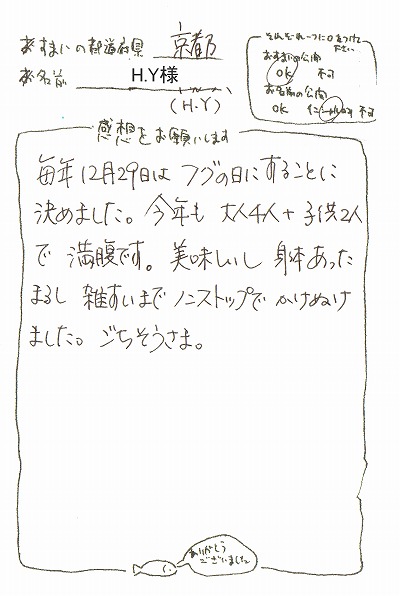 おすまいの都道府県 京都
お名前 H.Y様
(H.Y)
それぞれ一つに○をつけて
ください
おすまいの公開
OK 不可
お名前の公開
OK イニシャルのみ 不可
感想をお願いします
毎年12月29日は フグの日にすることに
決めました。今年も 大人4人+子供2人
で 満腹です。美味しいし 身体あった
まるし 雑すいまで ノンストップで かけぬけ
ました。ごちそうさま。
ありがとう
ございました